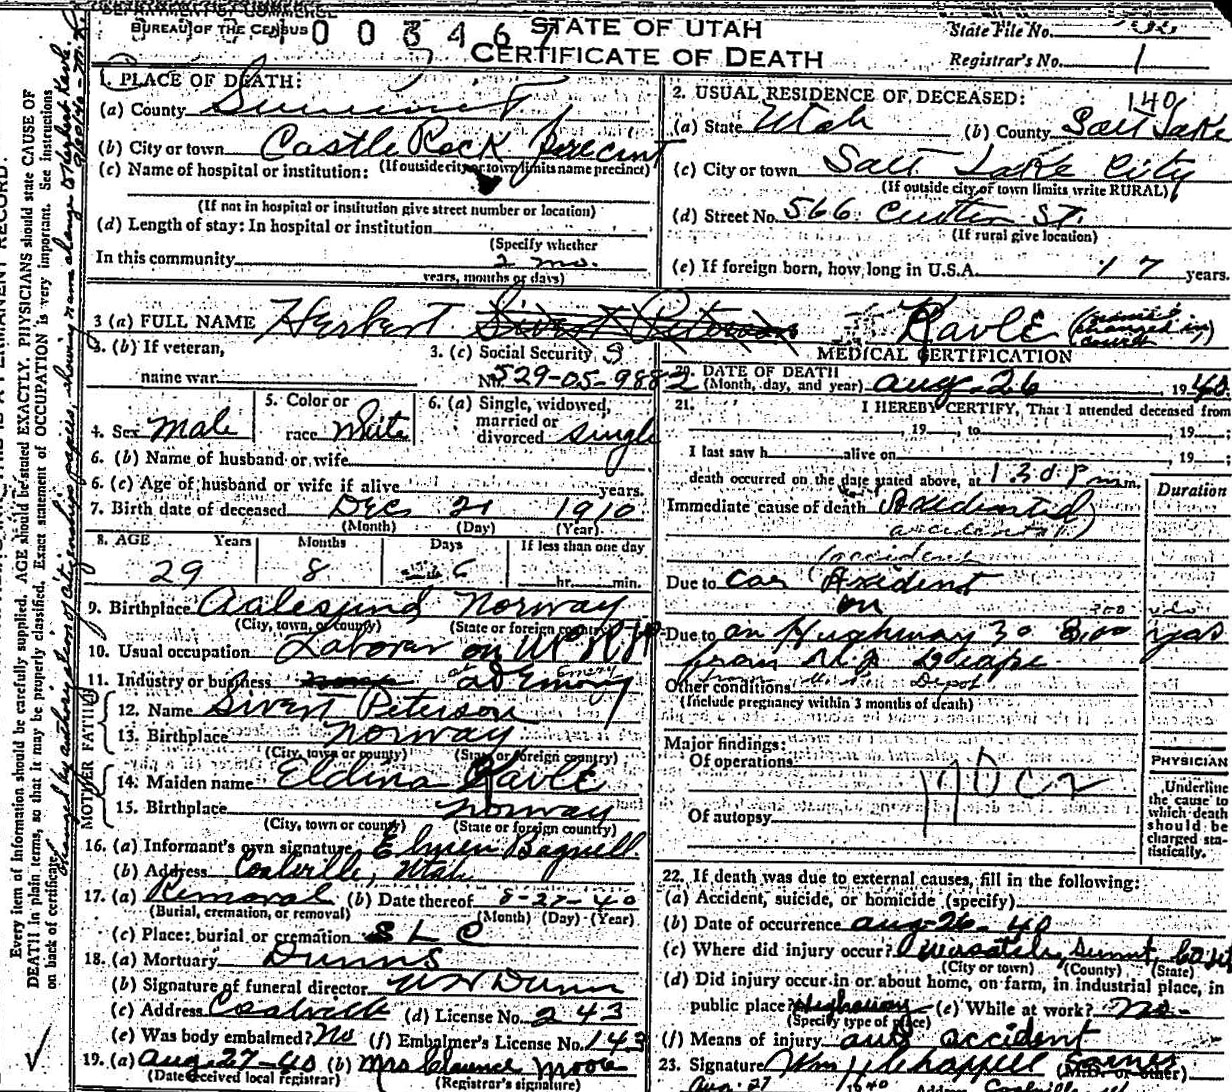 DEPARTMENT OF COMMERCE
BUREAU OF THE CENSUS
STATE OF UTAH
CERTIFICATE OF DEATH
State File No.
Registrar's No. 1
1. PLACE OF DEATH:
(a) County Summit
(b) City or town Castle Rock Precinct
(If outside city or town limits name precinct)
(c) Name of hospital or institution:
(If not in hospital or institution give street number or location)
(d) Length of stay: In hospital or institution
(Specify whether
In this community 2 mo.
years, months or days)
2. USUAL RESIDENCE OF DECEASED:
(a) State Utah (b) County Salt Lake
(c) City or town Salt Lake City
(If outside city or town limits write RURAL)
(d) Street No. 566 St.
(If rural give location)
(e) If foreign born, how long in U.S.A. 17 years.
3 (a) FULL NAME Herbert Sivert Peterson Kavle
3. (b) If veteran,
name war
3. (c) Social Security
No. 529-05-9882
4. Sex Male
5. Color or
race White
6. (a) Single, widowed,
married or
divorced single
6. (b) Name of husband or wife
6. (c) Age of husband or wife if alive years.
7. Birth date of deceased Dec 21 1910
(Month) (Day) (Year)
8. AGE Years Months Days If less than one day
29 8 6 hr. min.
9. Birthplace Aalesund Norway
(City, town, or county) (State or foreign country)
10. Usual occupation Laborer on UPRR
11. Industry or business none at Emory
FATHER
12. Name Sivert Peterson
13. Birthplace Norway
(City, town or county) (State or foreign country)
MOTHER
14. Maiden name Eldina Kavle
15. Birthplace Norway
(City, town or county) (State or foreign country)
16. (a) Informant's own signature
(b) Address Coalville, Utah
17. (a) Removal (b) Date thereof 8-27-40
(Burial, cremation, or removal) (Month) (Day) (Year)
(c) Place: burial or cremation S L C
18. (a) Mortuary Dunns
(b) Signature of funeral director Dunn
(c) Address Coalville (d) License No. 243
(e) Was body embalmed? No (f) Embalmer's License No. 143
19. (a) Aug-27-40 (b) Mrs Clarence Moore
(Date received local registrar) (Registrar's signature)
MEDICAL CERTIFICATION
20. DATE OF DEATH
(Month, day, and year) Aug-26 1940
21. I HEREBY CERTIFY, That I attended deceased from
, 19 to , 19 :
I last saw h alive on , 19 :
death occurred on the date stated above, at 1 30 P m.
Duration
Immediate cause of death Axidential
accidental
(accident
Due to car Axident
on
Due to on Hughway 30 300 yds
from
from Depot
Other conditions
(Include pregnancy within 3 months of death)
Major findings:
Of operations
Of autopsy
PHYSICIAN
Underline
the cause to
which death
should be
charged sta-
tistically.
22. If death was due to external causes, fill in the following:
(a) Accident, suicide, or homicide (specify)
(b) Date of occurrence Aug-26-40
(c) Where did injury occur? Wasatch, Summit,
(City or town) (County) (State)
(d) Did injury occur in or about home, on farm, in industrial place, in
public place? Highway (e) While at work? No-
(Specify type of place)
(f) Means of injury auto accident
23. Signature Wm
(M.D. or other)
Aug. 27 1940
Every item of information should be carefully supplied. AGE should be stated EXACTLY. PHYSICIANS should state CAUSE OF
DEATH in plain terms, so that it may be properly classified. Exact statement of OCCUPATION is very important. See instructions
on back of certificate.